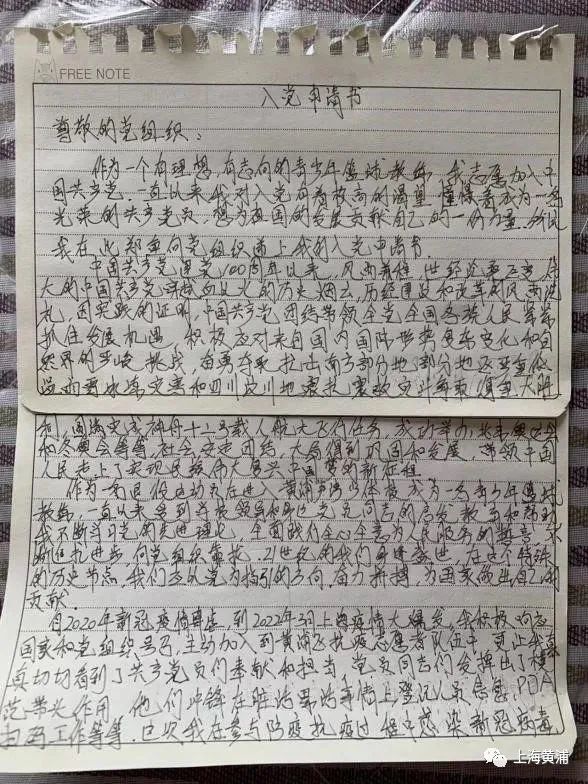 FREE NOTE
入党申请书
尊敬的党组织：
作为一个有理想，有志向的青少年篮球教练，我志愿加入中
国共产党。一直以来我对入党有着极高的渴望，憧憬着成为一名
光荣的共产党员，想为祖国的发展贡献自己的一份力量。所以
我在此郑重向党组织递上我的入党申请书。
中国共产党建党100周年以来，风雨兼程，世纪沧桑巨变，伟
大的中国共产党穿越血与火的历史烟云，历经建设和改革的风雨洗
礼，因实践的证明，中国共产党团结带领全党全国各族人民紧紧
抓住发展机遇，积极应对来自国内国际形势复杂变化和自
然界的严峻挑战，奋勇夺取抗击南方部分地部分地区
雨雪冰冻灾害和四川汶川地震抗震救灾斗争取得重大胜
利，圆满完成神舟十二号载人航天飞行任务，成功举办北京奥运会
和冬奥会等等，社会安定团结，大局得到巩固和发展，带领中国
人民走上了实现民族伟大复兴中国梦的新征程。
作为一名退役运动员在进入黄浦青少体校成为一名青少年篮球
教练，一直以来受到并被领导和身边党员同志的启发教育和帮助
我不断学习党的先进理论，全面践行全心全意为人民服务的誓言，不
断扎扎进步，向党组织靠拢。21世纪的我们身逢盛世，在这个特殊
的历史节点，我们应以党为指引的方向，奋力拼搏，为国家做出自己的
贡献。
自2020年新冠疫情肆虐，到2022年3月上海疫情大爆发，我积极响应
国家和党组织号召，主动加入到黄浦区抗疫志愿者队伍中，更让我真
真切切看到了共产党员们奉献和担当，党员同志们发挥出了模
范带头作用，他们冲锋在 登记人员信息，PDA
扫码工作等等。这次我在参与防疫抗疫过程中感染新冠病毒
上海黄浦